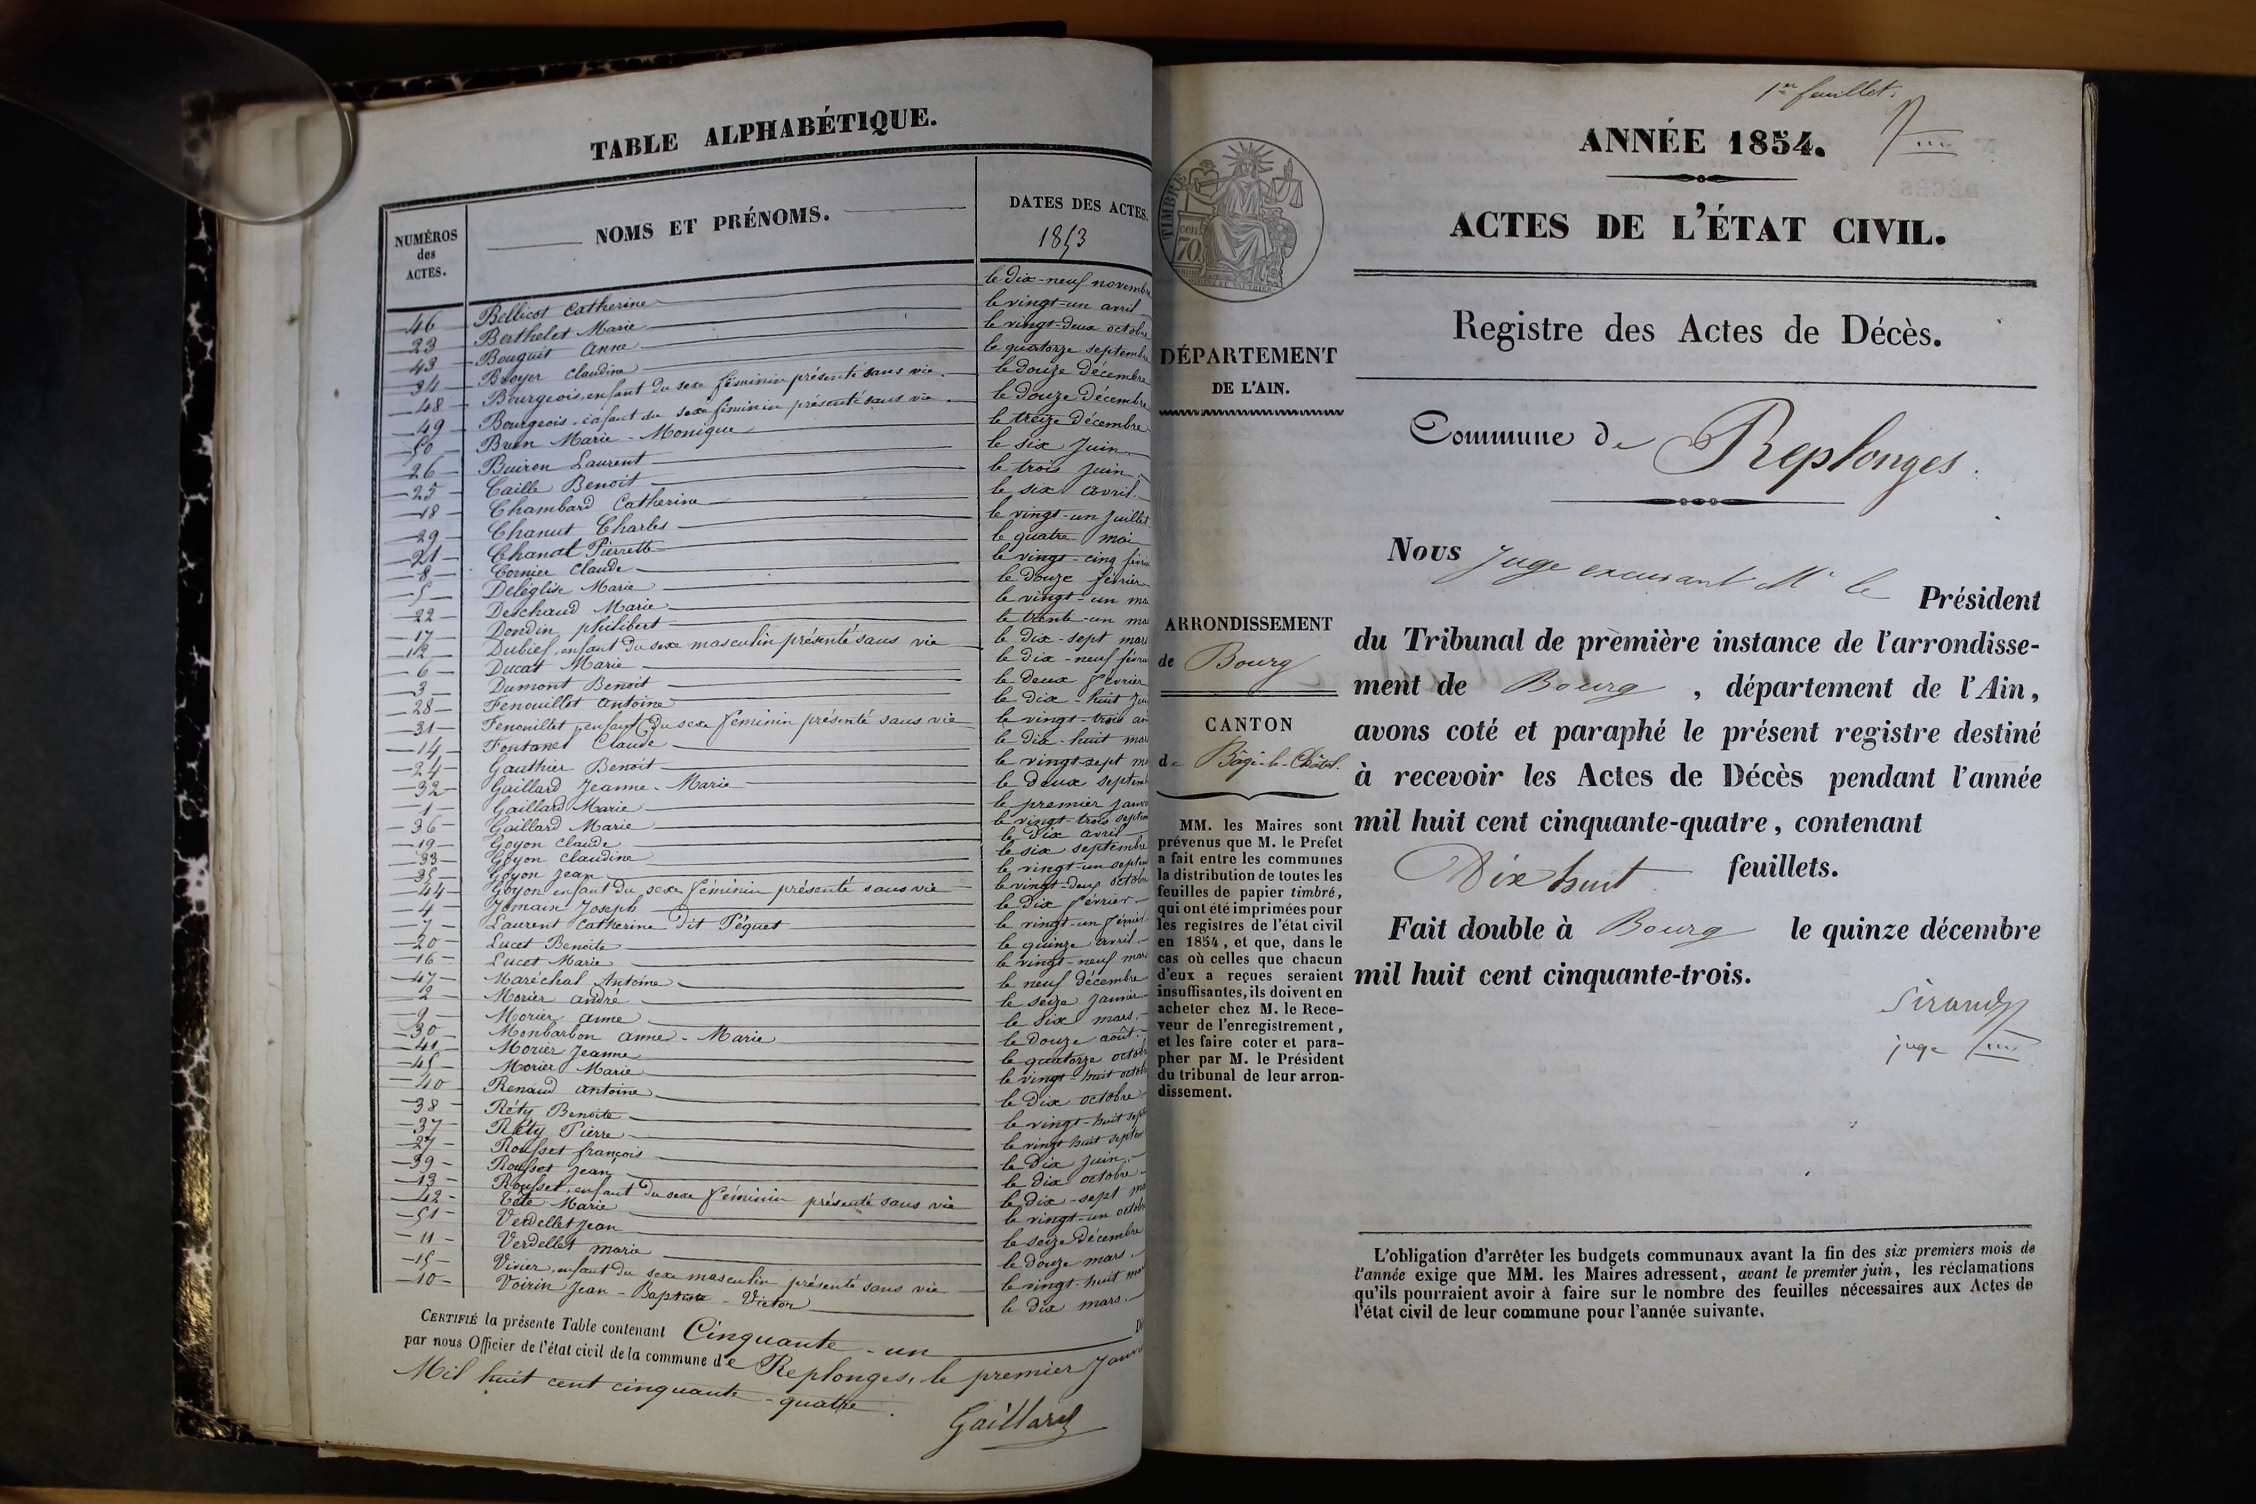 TABLE ALPHABÉTIQUE.
NUMÉROS des ACTES. NOMS ET PRÉNOMS. DATES DES ACTES. 1853
46 Bellicot Catherine le dix-neuf novembre
23 Berthelet Marie le vingt-un avril
43 Bouquit Anne le vingt-deux octobre
34 Broyer Claudine le quatorze septembre
48 Bourgeois, enfant du sexe féminin présenté sans vie le douze décembre
49 Bourgeois, enfant du sexe féminin présenté sans vie le douze décembre
50 Brun Marie-Monique le treize décembre
26 Buiron Laurent le six juin
25 Caille Benoit le trois juin
18 Chambard Catherine le six avril
29 Chanut Charles le vingt-un juillet
21 Chanal Pierrette le quatre mai
8 Cornier Claude le vingt-cinq févri
5 Deléglise Marie le douze février
22 Deschaud Marie le vingt-un ma
17 Dondin philibert le trente-un ma
12 Dubief, enfant du sexe masculin présenté sans vie le dix-sept mars
6 Ducat Marie le dix-neuf févri
3 Dumont Benoit le deux février
28 Fenouillet Antoine le dix-huit jui
31 Fenouillet, enfant du sexe féminin présenté sans vie le vingt-trois ao
14 Fontanel Claude le dix-huit mar
24 Gauthier Benoit le vingt-sept m
32 Gaillard Jeanne-Marie le deux septem
1 Gaillard Marie le premier janvi
36 Gaillard Marie le vingt-trois septem
19 Goyon Claude le dix avril
33 Goyon Claudine le six septembre
35 Goyon Jean le vingt-un septem
44 Goyon enfant du sexe féminin présenté sans vie le vingt-deux octobre
4 Jomain Joseph le dix février
7 Laurent Catherine dit Péquet le vingt-un février
20 Lucet Benoite le quinze avril
16 Lucet Marie le vingt-neuf mars
47 Maréchal Antoine le neuf décembre
2 Morier André le seize janvier
9 Morier Anne le six mars
30 Monbarbon Anne-Marie le douze août
41 Morier Jeanne le quatorze octob
45 Morier Marie le vingt-huit octob
40 Renaud Antoine le dix octobre
38 Réty Benoite le vingt-huit sept
37 Réty Pierre le vingt huit septem
27 Rousset françois le dix juin
39 Rousset Jean le dix octobre
13 Rousset, enfant du sexe féminin présenté sans vie le dix-sept ma
42 Tête Marie le vingt-un octob
51 Verdellet Jean le seize décembre
11 Verdellet marie le douze mars
15 Vivier, enfant du sexe masculin présenté sans vie le vingt-huit mar
10 Voirin Jean-Baptiste-Victor le dix mars
CERTIFIÉ la présente Table contenant Cinquante-un
par nous Officier de l'état civil de la commune de Replonges, le premier Janvi
Mil huit cent cinquante-quatre.
Gaillard
1er feuillet.
ANNÉE 1854.
ACTES DE L'ÉTAT CIVIL.
Registre des Actes de Décès.
Commune de Replonges.
TIMBRE
70
DÉPARTEMENT
DE L'AIN.
ARRONDISSEMENT
de Bourg
CANTON
de Bâgé-le-Châtel.
MM. les Maires sont
prévenus que M. le Préfet
a fait entre les communes
la distribution de toutes les
feuilles de papier timbré,
qui ont été imprimées pour
les registres de l'état civil
en 1854, et que, dans le
cas où celles que chacun
d'eux a reçues seraient
insuffisantes, ils doivent en
acheter chez M. le Rece-
veur de l'enregistrement,
et les faire coter et para-
pher par M. le Président
du tribunal de leur arron-
dissement.
Nous Juge excusant Mr le Président
du Tribunal de première instance de l'arrondisse-
ment de Bourg, département de l'Ain,
avons coté et paraphé le présent registre destiné
à recevoir les Actes de Décès pendant l'année
mil huit cent cinquante-quatre, contenant
Dix huit feuillets.
Fait double à Bourg le quinze décembre
mil huit cent cinquante-trois.
Sirand
juge
L'obligation d'arrêter les budgets communaux avant la fin des six premiers mois de
l'année exige que MM. les Maires adressent, avant le premier juin, les réclamations
qu'ils pourraient avoir à faire sur le nombre des feuilles nécessaires aux Actes de
l'état civil de leur commune pour l'année suivante.